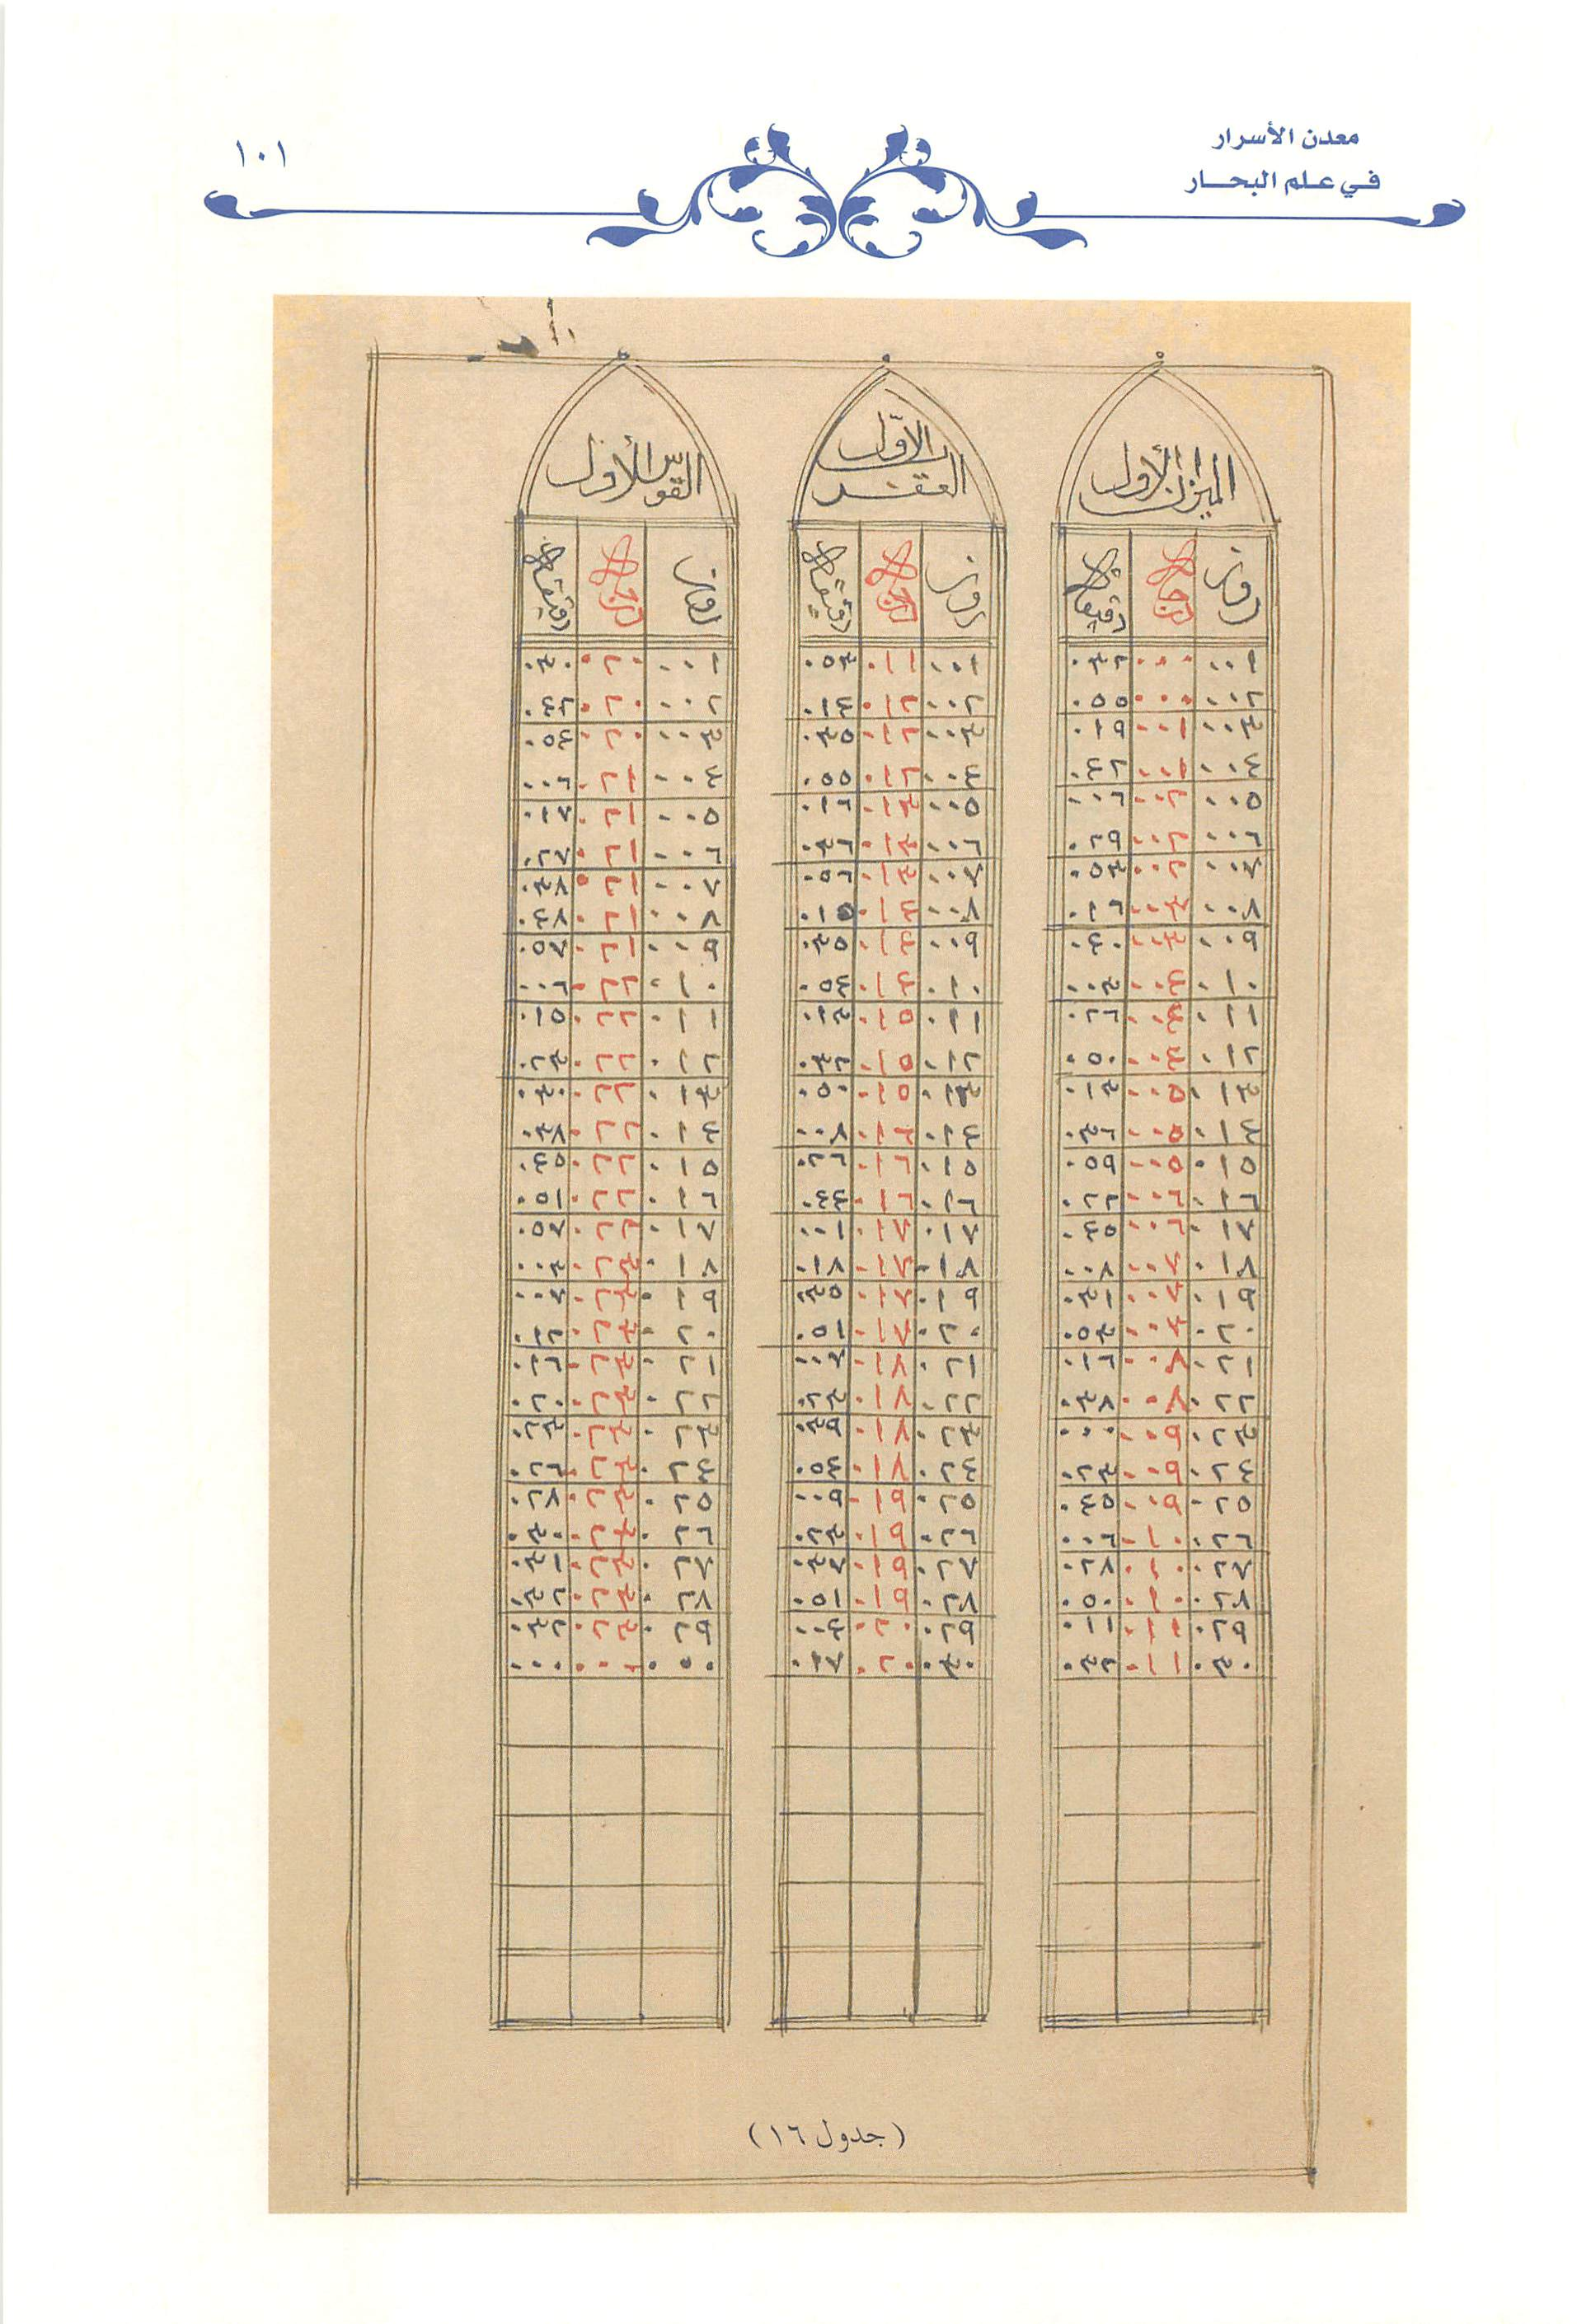 معدن الأسرار
في علم البحار
١٠١
الميزان الأول
روز درجاة دقيقاة
٠٠١ ٠٠٠ ٠٣٢
٠٠٢ ٠٠٠ ٠٥٥
٠٠٣ ٠٠١ ٠١٩
٠٠٤ ٠٠١ ٠٤٢
٠٠٥ ٠٠٢ ٠٠٦
٠٠٦ ٠٠٢ ٠٢٩
٠٠٧ ٠٠٢ ٠٥٣
٠٠٨ ٠٠٣ ٠١٦
٠٠٩ ٠٠٣ ٠٤٠
٠١٠ ٠٠٤ ٠٠٣
٠١١ ٠٠٤ ٠٢٦
٠١٢ ٠٠٤ ٠٥٠
٠١٣ ٠٠٥ ٠١٣
٠١٤ ٠٠٥ ٠٣٦
٠١٥ ٠٠٥ ٠٥٩
٠١٦ ٠٠٦ ٠٢٢
٠١٧ ٠٠٦ ٠٤٥
٠١٨ ٠٠٧ ٠٠٨
٠١٩ ٠٠٧ ٠٣١
٠٢٠ ٠٠٧ ٠٥٣
٠٢١ ٠٠٨ ٠١٦
٠٢٢ ٠٠٨ ٠٣٨
٠٢٣ ٠٠٩ ٠٠٠
٠٢٤ ٠٠٩ ٠٢٣
٠٢٥ ٠٠٩ ٠٤٥
٠٢٦ ٠١٠ ٠٠٦
٠٢٧ ٠١٠ ٠٢٨
٠٢٨ ٠١٠ ٠٥٠
٠٢٩ ٠١١ ٠١١
٠٣٠ ٠١١ ٠٣٢
العقرب الأول
روز درجاة دقيقاة
٠٠١ ٠١١ ٠٥٣
٠٠٢ ٠١٢ ٠١٤
٠٠٣ ٠١٢ ٠٣٥
٠٠٤ ٠١٢ ٠٥٥
٠٠٥ ٠١٣ ٠١٦
٠٠٦ ٠١٣ ٠٣٦
٠٠٧ ٠١٣ ٠٥٦
٠٠٨ ٠١٤ ٠١٥
٠٠٩ ٠١٤ ٠٣٥
٠١٠ ٠١٤ ٠٥٤
٠١١ ٠١٥ ٠١٣
٠١٢ ٠١٥ ٠٣٢
٠١٣ ٠١٥ ٠٥٠
٠١٤ ٠١٦ ٠٠٨
٠١٥ ٠١٦ ٠٢٦
٠١٦ ٠١٦ ٠٤٤
٠١٧ ٠١٧ ٠٠١
٠١٨ ٠١٧ ٠١٨
٠١٩ ٠١٧ ٠٣٥
٠٢٠ ٠١٧ ٠٥١
٠٢١ ٠١٨ ٠٠٧
٠٢٢ ٠١٨ ٠٢٣
٠٢٣ ٠١٨ ٠٣٩
٠٢٤ ٠١٨ ٠٥٤
٠٢٥ ٠١٩ ٠٠٩
٠٢٦ ٠١٩ ٠٢٣
٠٢٧ ٠١٩ ٠٣٧
٠٢٨ ٠١٩ ٠٥١
٠٢٩ ٠٢٠ ٠٠٤
٠٣٠ ٠٢٠ ٠١٧
القوس الأول
درجاة دقيقاة
٠٠١ ٠٢٠ ٠٣٠
٠٠٢ ٠٢٠ ٠٤٢
٠٠٣ ٠٢٠ ٠٥٤
٠٠٤ ٠٢١ ٠٠٦
٠٠٥ ٠٢١ ٠١٧
٠٠٦ ٠٢١ ٠٢٧
٠٠٧ ٠٢١ ٠٣٨
٠٠٨ ٠٢١ ٠٤٨
٠٠٩ ٠٢١ ٠٥٧
٠١٠ ٠٢٢ ٠٠٦
٠١١ ٠٢٢ ٠١٥
٠١٢ ٠٢٢ ٠٢٣
٠١٣ ٠٢٢ ٠٣٠
٠١٤ ٠٢٢ ٠٣٨
٠١٥ ٠٢٢ ٠٤٥
٠١٦ ٠٢٢ ٠٥١
٠١٧ ٠٢٢ ٠٥٧
٠١٨ ٠٢٣ ٠٠٣
٠١٩ ٠٢٣ ٠٠٧
٠٢٠ ٠٢٣ ٠١٢
٠٢١ ٠٢٣ ٠١٦
٠٢٢ ٠٢٣ ٠٢٠
٠٢٣ ٠٢٣ ٠٢٣
٠٢٤ ٠٢٣ ٠٢٦
٠٢٥ ٠٢٣ ٠٢٨
٠٢٦ ٠٢٣ ٠٣٠
٠٢٧ ٠٢٣ ٠٣١
٠٢٨ ٠٢٣ ٠٣٢
٠٢٩ ٠٢٣ ٠٣٢
٠٠٠ ٠٠٠ ٠٠٠
(جدول ١٦)